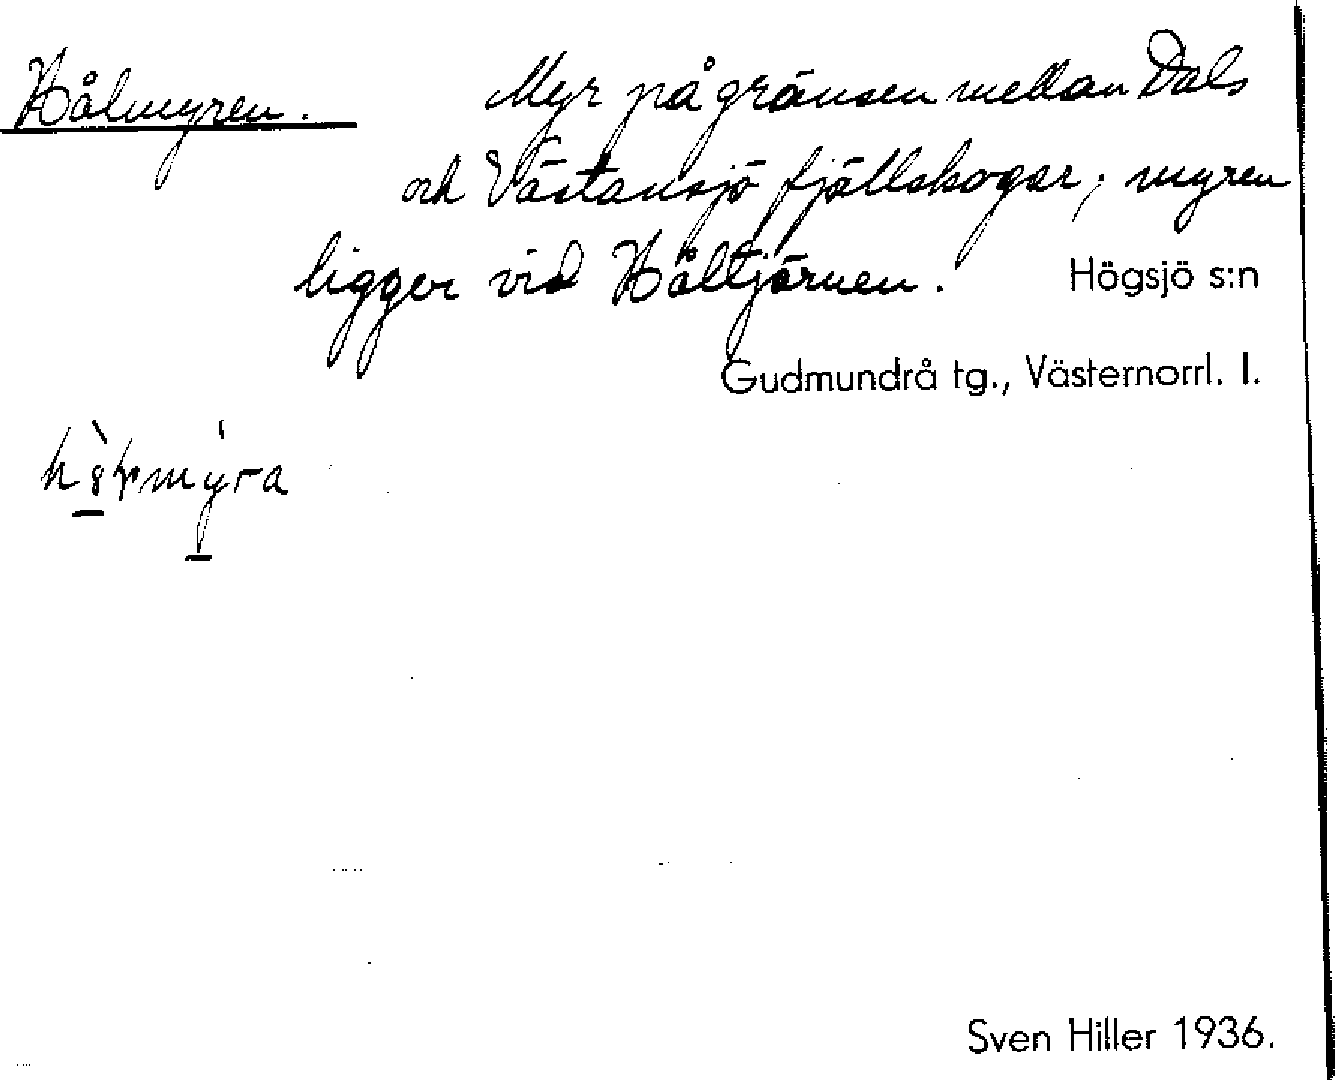 Hålmyren. Myr på gränsen mellan Dals
och Västansjö fjällskogar; myren
ligger vid Håltjärnen. Högsjö s:n
Gudmundrå tg., Västernorrl. l.
Sven Hiller 1936.